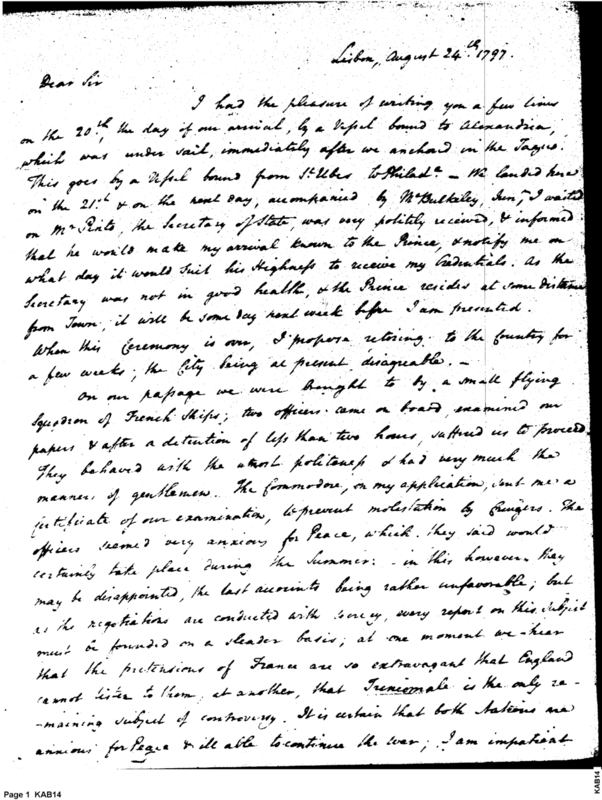 Lisbon, August 24th. 1797.
Dear Sir
I had the pleasure of writing you a few lines
on the 20th, the day of our arrival, by a Vessel bound to Alexandria,
which was under sail, immediately after we anchord in the Tagus.
This goes by a Vessel bound from St. Ubes to Philada — We landed here
on the 21st. & on the next day, accompanied by Mr Bulkeley, Junr, I waited
on Mr Pinto, the Secretary of State, was very politely received, & informed
that he would make my arrival known to the Prince, & notify me on
what day it would suit his Highness to receive my Credentials. As the
Secretary was not in good health, & the Prince resides at some distance
from Town, it will be some day next week before I am presented.
When this Ceremony is over, I propose retiring to the Country for
a few weeks; the City being at present disagreable. —
On our passage we were brought to by a small flying
Squadron of French Ships; two officers came on board, examined our
papers & after a detention of less than two hours, suffered us to proceed.
They behaved with the utmost politeness & had very much the
manners of gentlemen. The Commodore, on my application, sent me a
certificate of our examination, to prevent molestation by Cruizers. The
officers seemed very anxious for Peace, which they said would
certainly take place during the Summer: in this however they
may be disappointed, the last accounts being rather unfavorable; but
as the negotiations are conducted with secrecy, every report on this subject
must be founded on a slender basis; at one moment we hear
that the pretensions of France are so extravagant that England
cannot listen to them, at another, that Trincomale is the only re-
-maining subject of controversy. It is certain that both Nations are
anxious for Peace & ill able to continue the war; I am impatient
Page 1 KAB14
KAB14